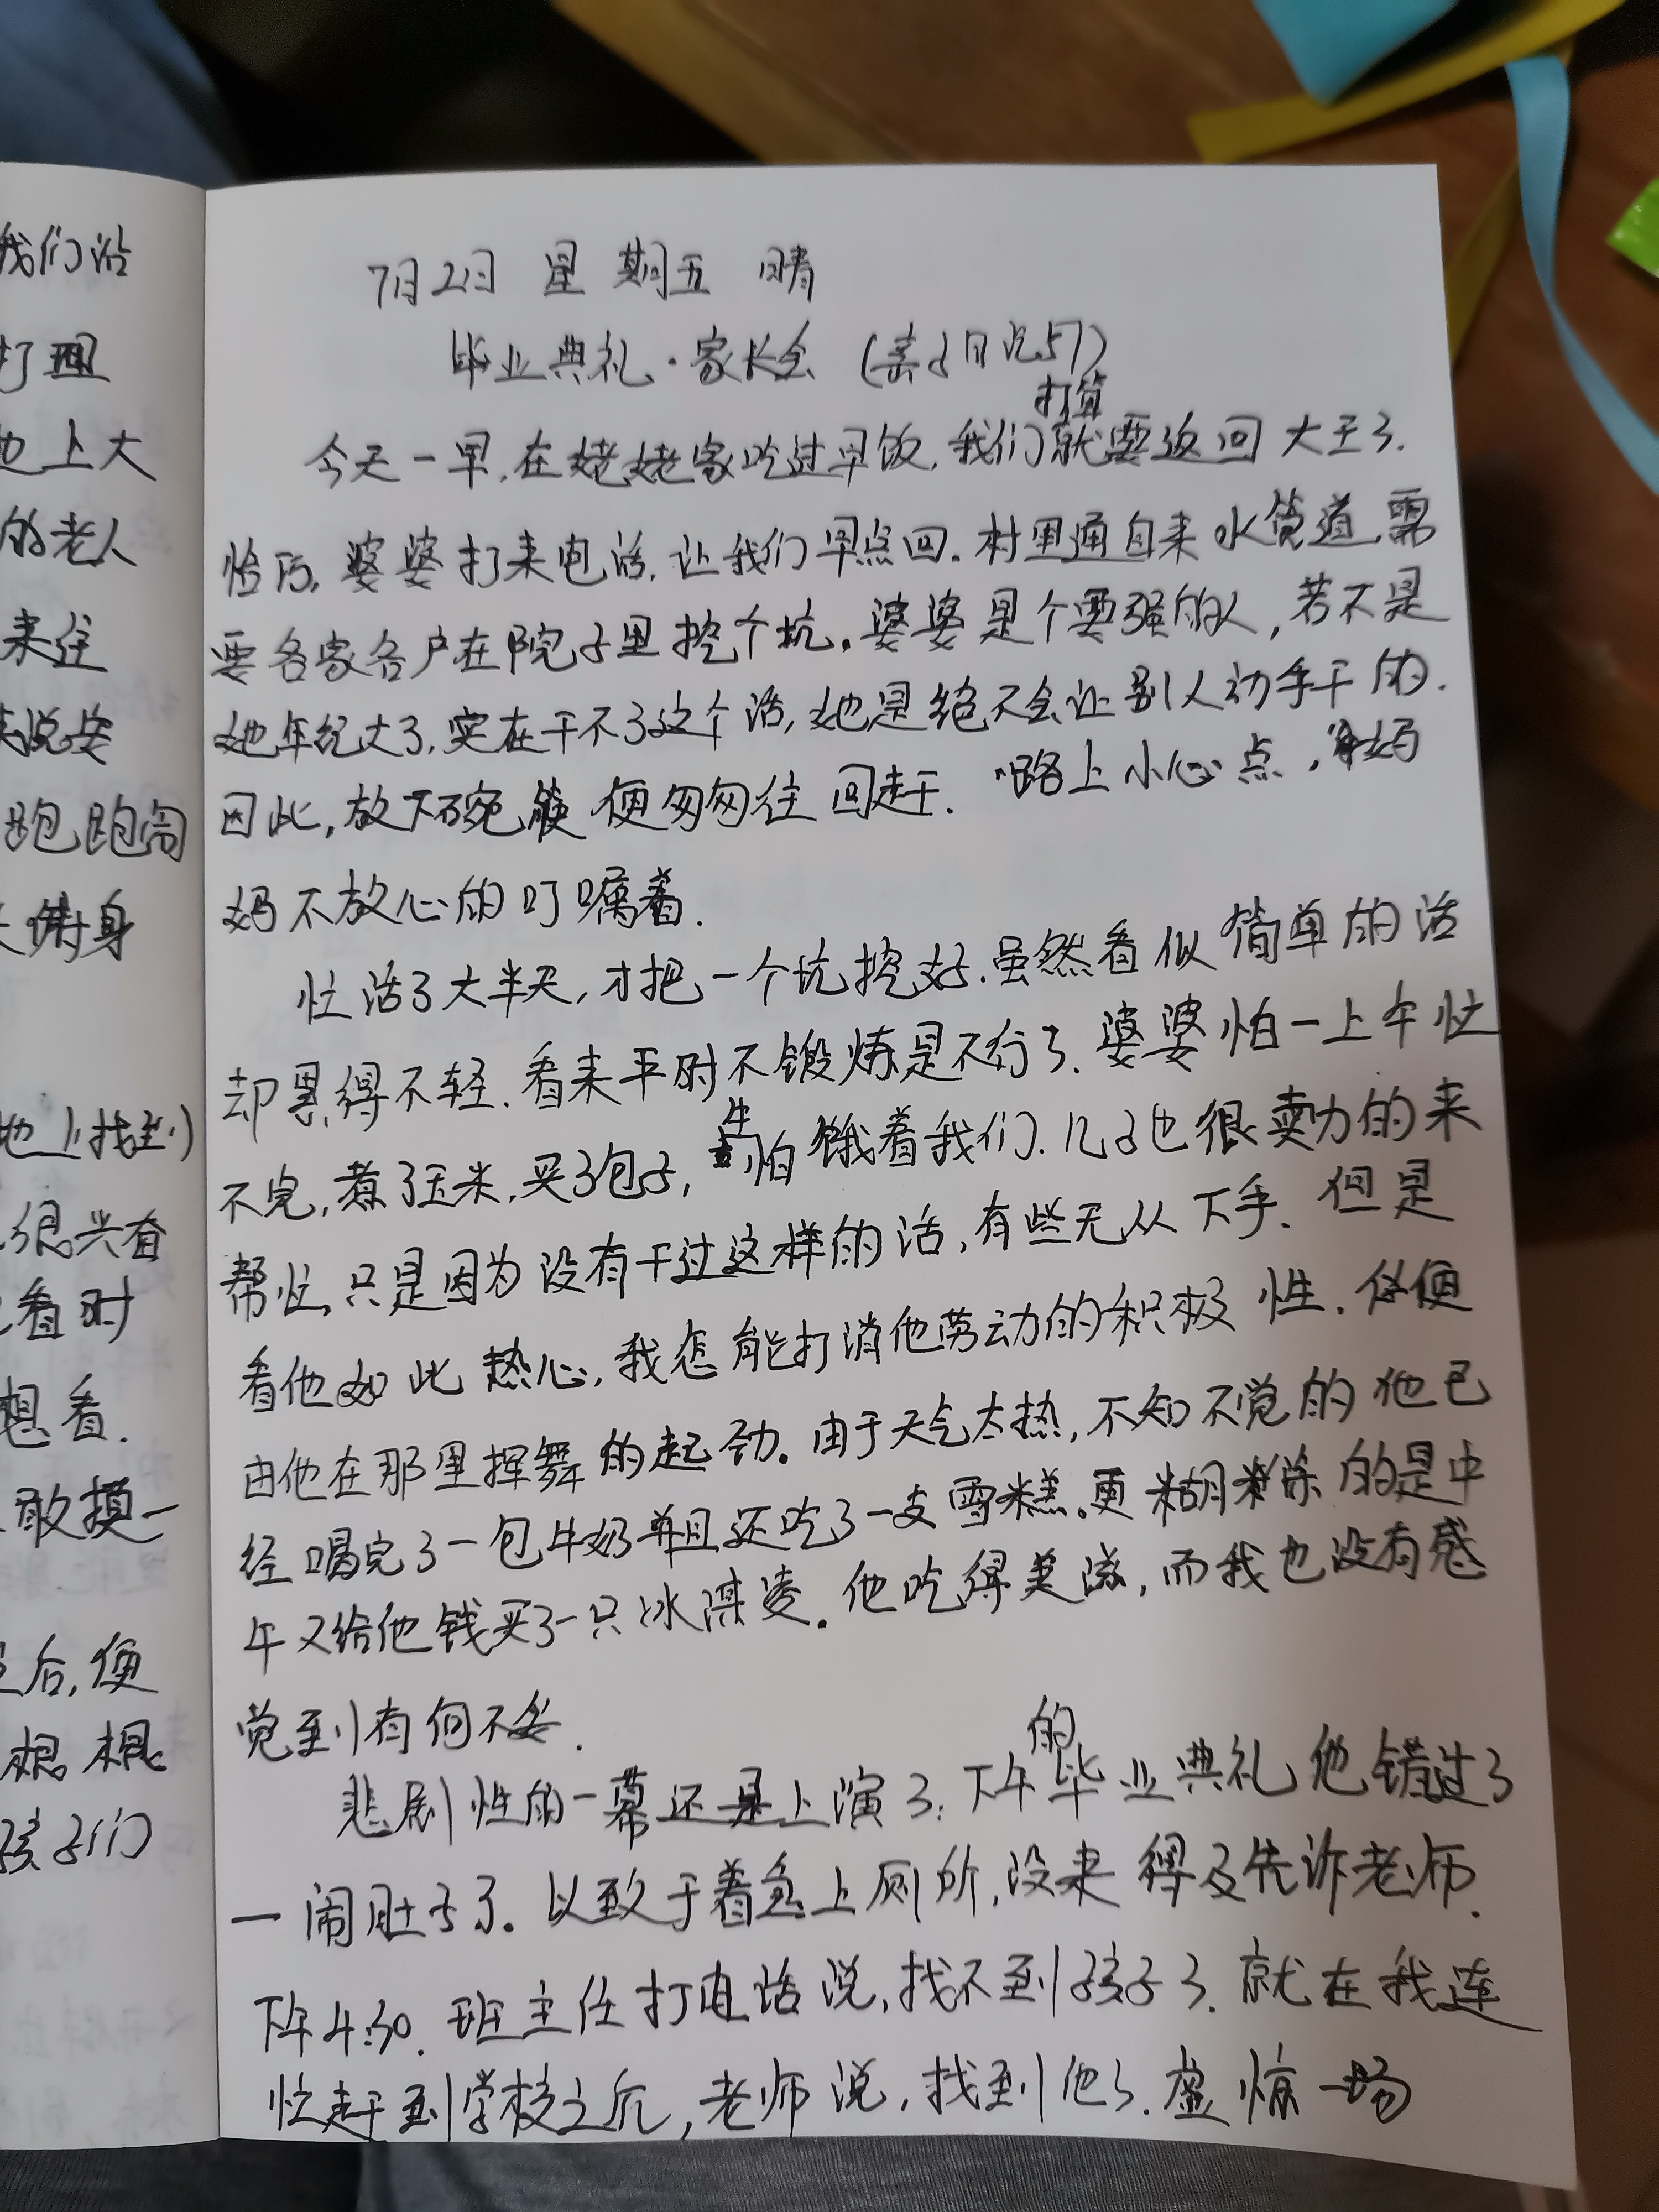 我们沿
打理
地上大
的老人
来住
来说安
跑跑闹
地上找到
很兴奋
看时
想看.
敢摸一
后,便
根根
孩子们
7月2日 星期五 晴
毕业典礼·家长会 (亲子日记57)
打算
今天一早,在姥姥家吃过早饭,我们就要返回大王了.
恰巧,婆婆打来电话,让我们早点回.村里通自来水管道,需
要各家各户在院子里挖个坑。婆婆是个要强的人,若不是
她年纪大了,实在干不了这个活,她是绝不会让别人动手干的.
因此,放下碗筷便匆匆往回赶.“路上小心点,”妈
妈不放心的叮嘱着.
忙活了大半天,才把一个坑挖好.虽然看似简单的活
却累得不轻.看来平时不锻炼是不行了.婆婆怕一上午忙
生
不完,煮了玉米,买了包子,怕饿着我们.儿子也很卖力的来
帮忙,只是因为没有干过这样的活,有些无从下手.但是
看他如此热心,我怎能打消他劳动的积极性.任便
由他在那里挥舞的起劲。由于天气太热,不知不觉的他已
经喝完了一包牛奶并且还吃了一支雪糕。更糊涂的是中
午又给他钱买了一只冰淇凌。他吃得美滋,而我也没有感
觉到有何不妥.
的
悲剧性的一幕还是上演了:下午毕业典礼他错过了
一闹肚子了。以致于着急上厕所,没来得及告诉老师.
下午4:30.班主任打电话说,找不到孩子了.就在我连
忙赶到学校之后,老师说,找到他了.虚惊一场